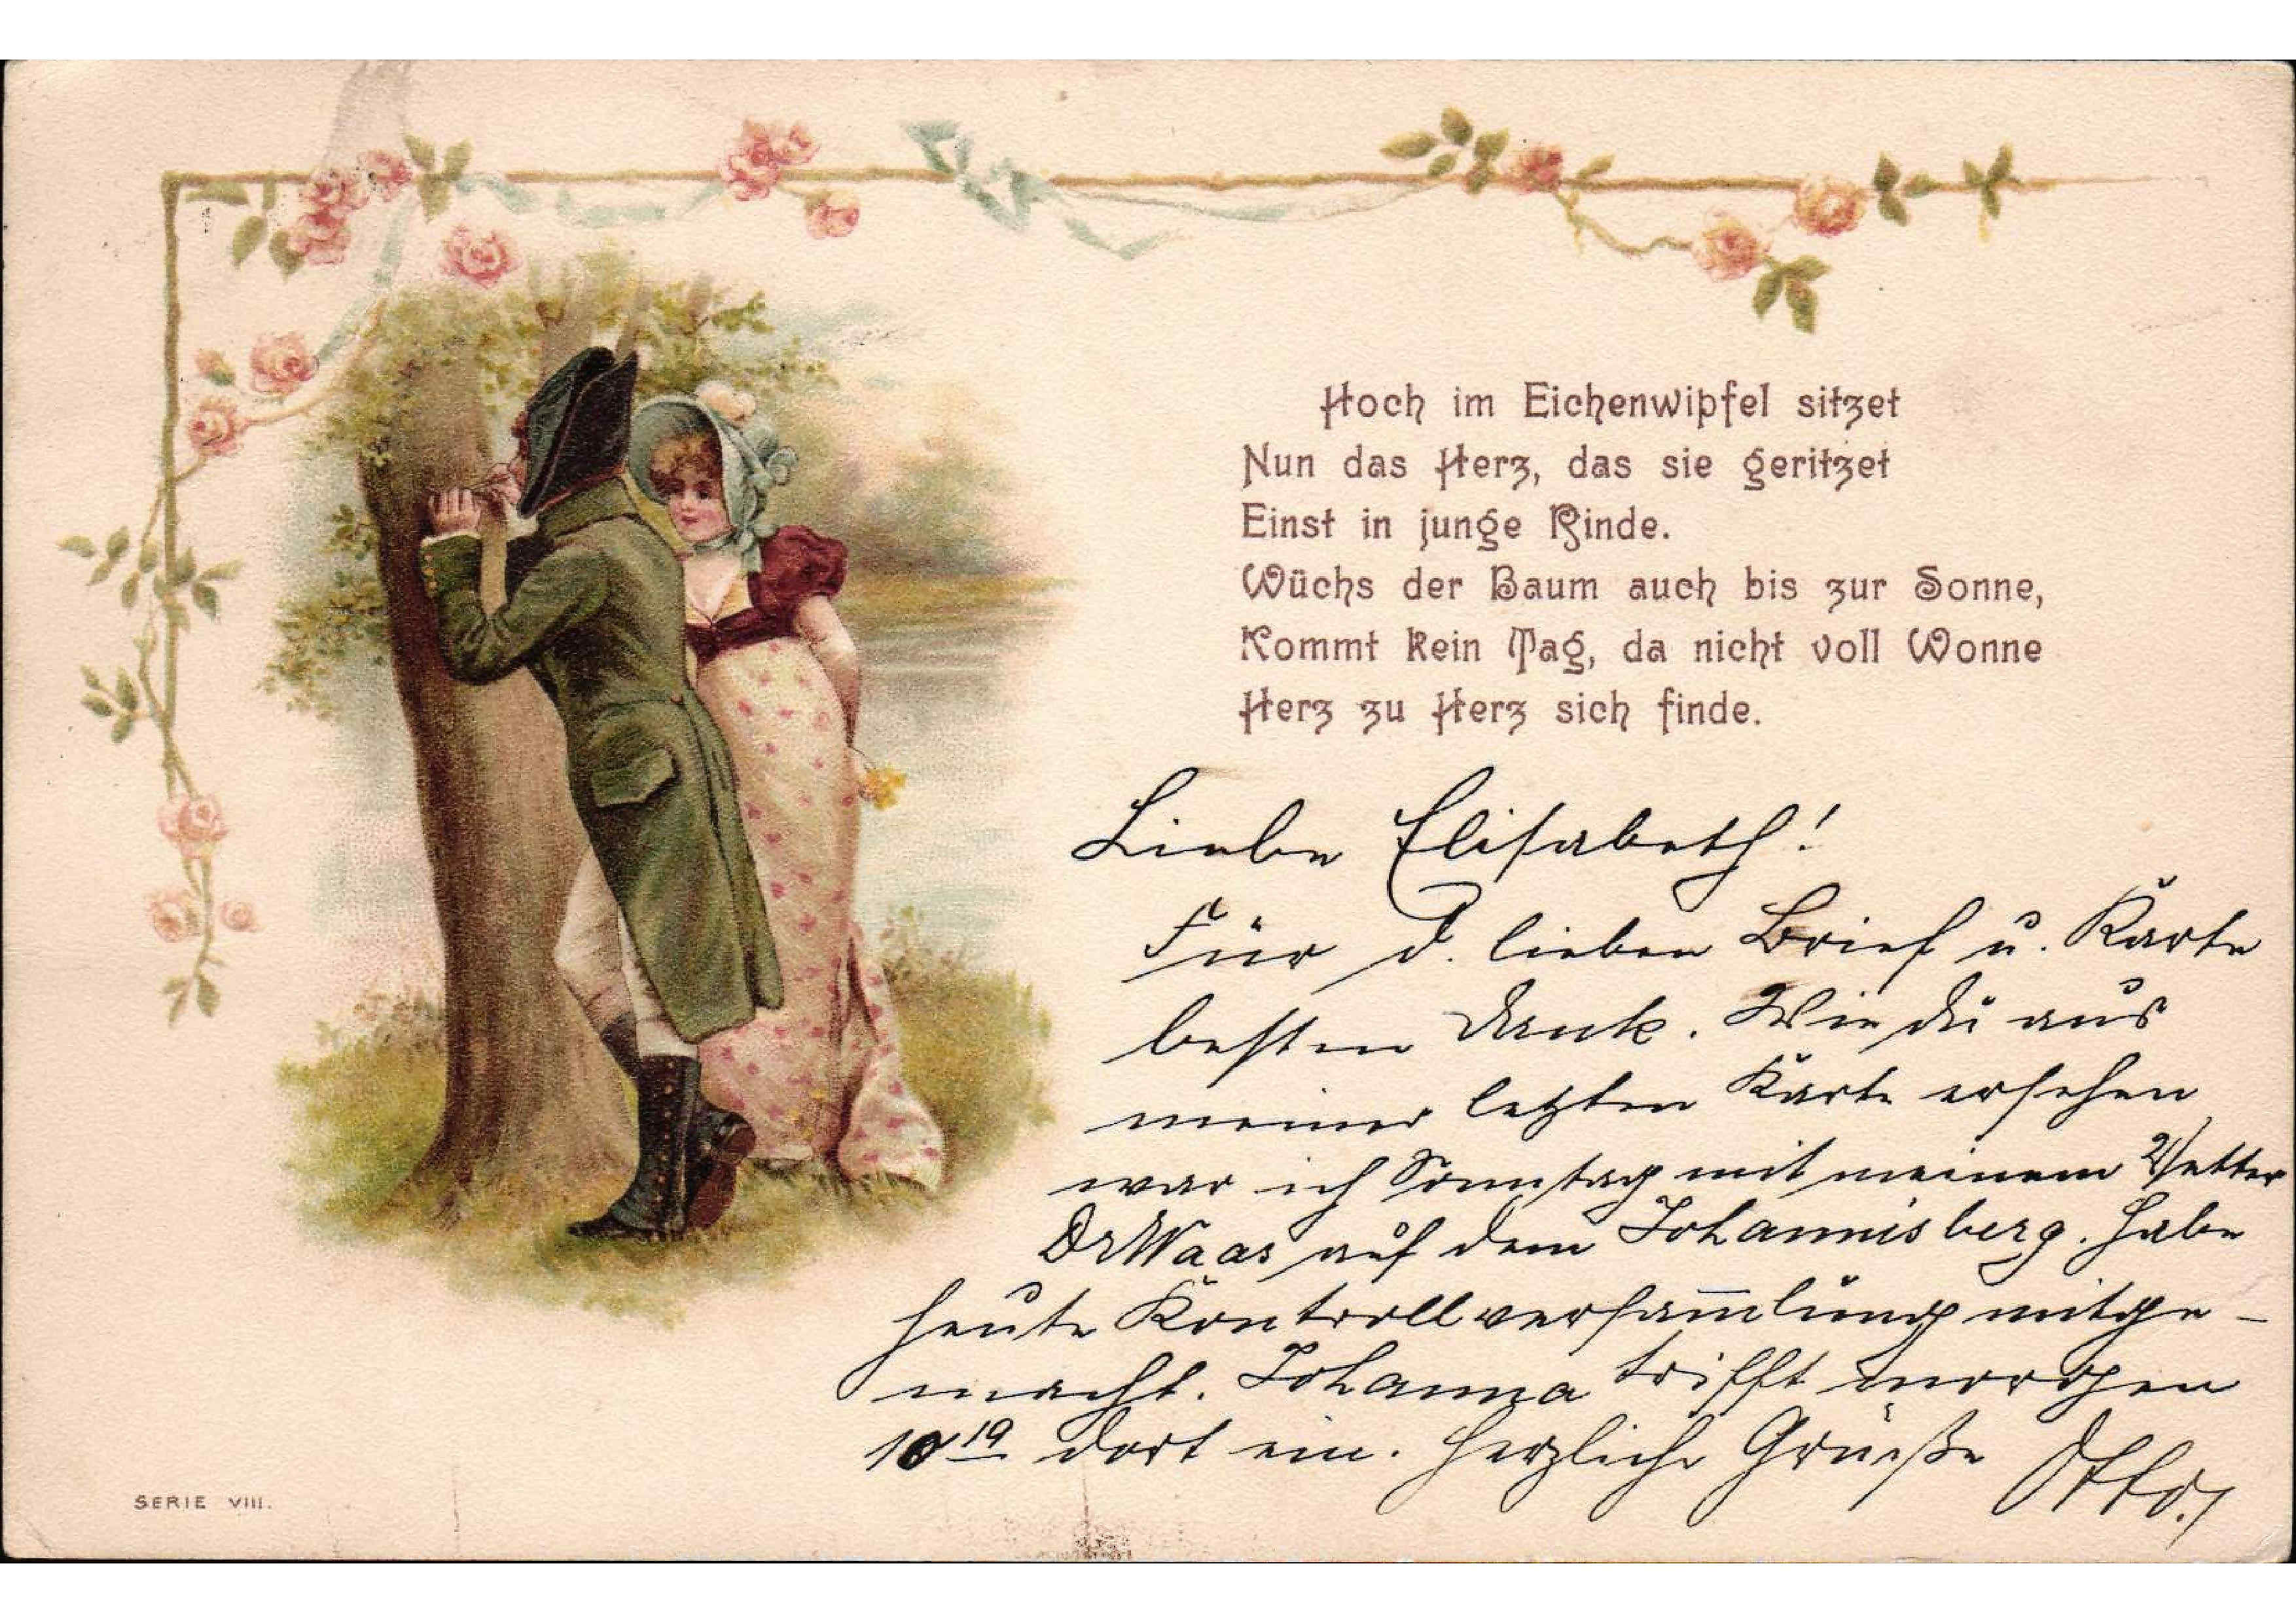 Hoch im Eichenwipfel sitzet
Nun das Herz, das sie geritzet
Einst in junge Rinde.
Wüchs der Baum auch bis zur Sonne,
Kommt kein Tag, da nicht voll Wonne
Herz zu Herz sich finde.
Liebe Elisabeth!
Für d. lieben Brief u. Karte
besten Dank. Wie du aus
meiner letzten Karte ersehen
war ich Sonntag mit meinem Vetter
Dr Waas auf dem Johannisberg. Habe
heute Kontrollversam̅lung mitge-
macht. Johanna trifft morgen
10 19 dort ein. Herzliche Grüße
Otto.
SERIE VIII.